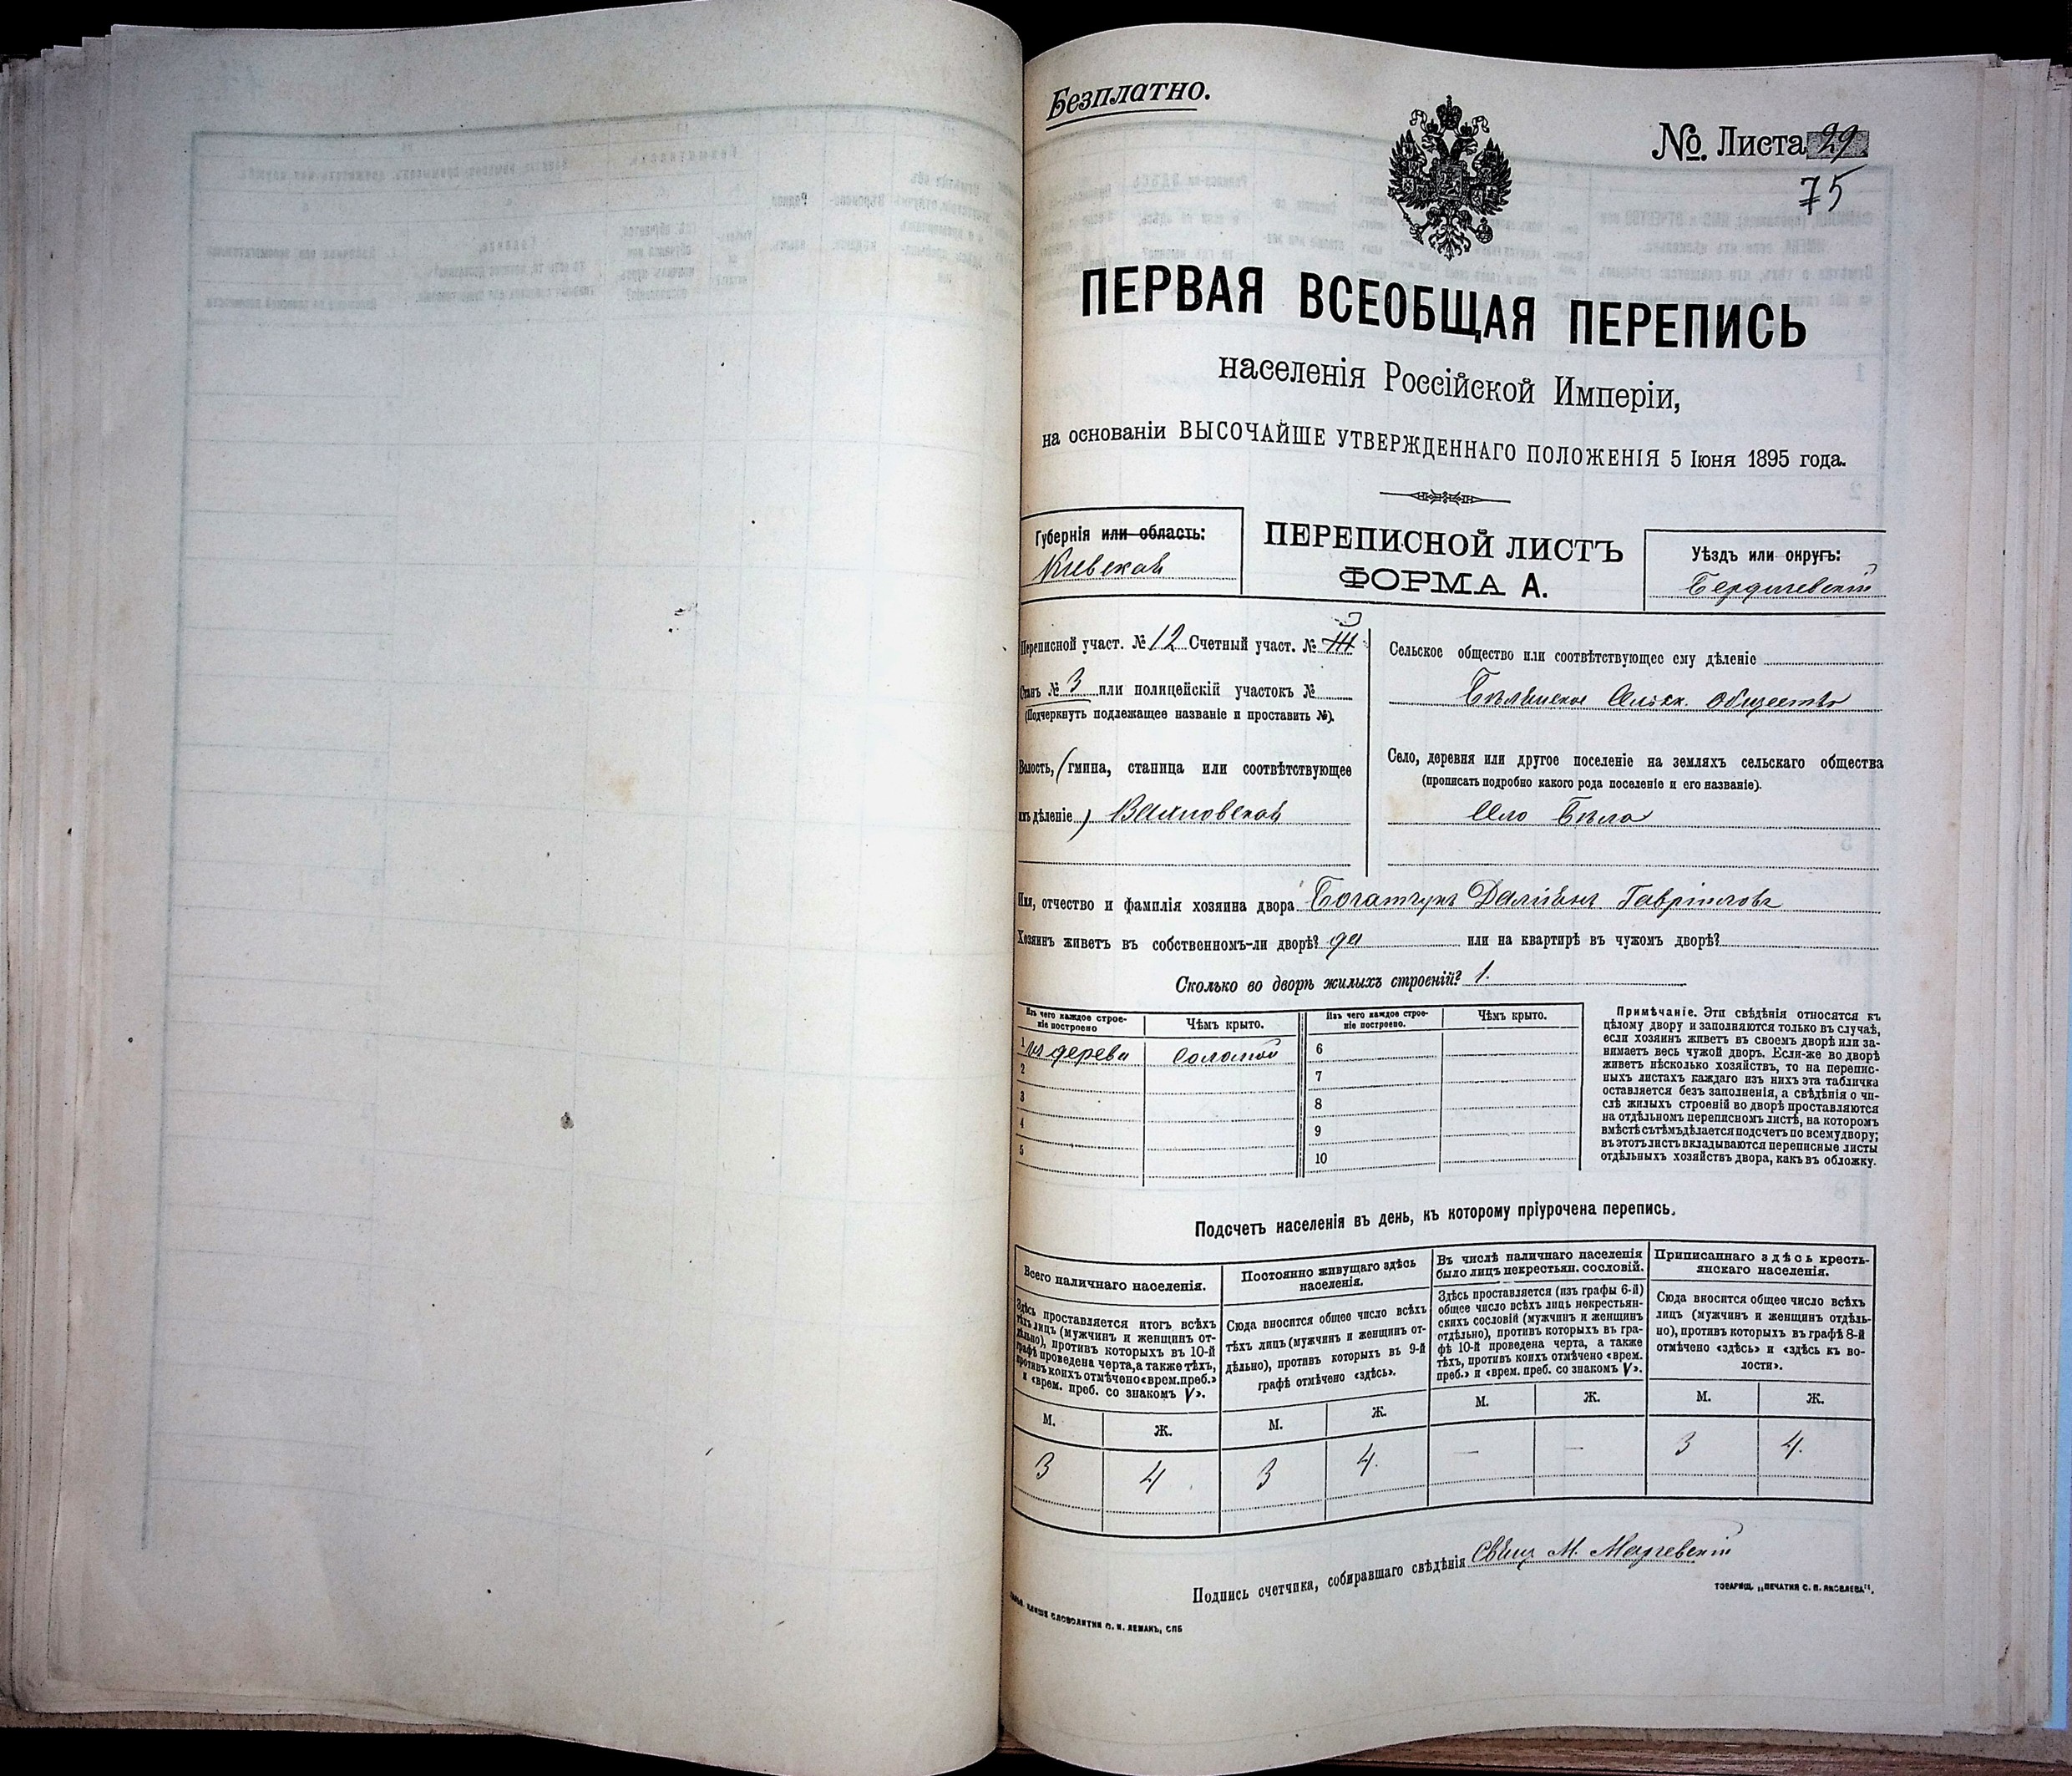 Безплатно.
№ Листа 29
75
ПЕРВАЯ ВСЕОБЩАЯ ПЕРЕПИСЬ
населенія Россійской Имперіи,
на основаніи ВЫСОЧАЙШЕ УТВЕРЖДЕННАГО ПОЛОЖЕНІЯ 5 Іюня 1895 года.
Губернія или область:
Кіевская
ПЕРЕПИСНОЙ ЛИСТЪ
ФОРМА А.
Уѣздъ или округъ:
Бердичевскій
Переписной участ. № 12 Счетный участ. № 3
Станъ № 3 или полицейскій участокъ №
(Подчеркнуть подлежащее названіе и проставить №).
Волость, (гмина, станица или соотвѣтствующее
имъ дѣленіе) Вахновская
Сельское общество или соотвѣтствующее ему дѣленіе
Бѣлянское Сельск. Общество
Село, деревня или другое поселеніе на земляхъ сельскаго общества
(прописать подробно какого рода поселеніе и его названіе).
Село Бѣла
Имя, отчество и фамилія хозяина двора Богатчукъ Даміянъ Гавріиловъ
Хозяинъ живетъ въ собственномъ-ли дворѣ? да или на квартирѣ въ чужомъ дворѣ?
Сколько во дворѣ жилыхъ строеній? 1.
Изъ чего каждое строе-
ніе построено
Чѣмъ крыто.
Изъ чего каждое строе-
ніе построено.
Чѣмъ крыто.
1 из дерева соломой 6
2 7
3 8
4 9
5 10
Примѣчаніе. Эти свѣдѣнія относятся къ
цѣлому двору и заполняются только въ случаѣ,
если хозяинъ живетъ въ своемъ дворѣ или за-
нимаетъ весь чужой дворъ. Если-же во дворѣ
живетъ нѣсколько хозяйствъ, то на перепис-
ныхъ листахъ каждаго изъ нихъ эта табличка
оставляется безъ заполненія, а свѣдѣнія о чи-
слѣ жилыхъ строеній во дворѣ проставляются
на отдѣльномъ переписномъ листѣ, на которомъ
вмѣстѣ съ тѣмъ дѣлается подсчетъ по всему двору;
въ этотъ листъ вкладываются переписные листы
отдѣльныхъ хозяйствъ двора, какъ въ обложку.
Подсчетъ населенія въ день, къ которому пріурочена перепись.
Всего наличнаго населенія.
Здѣсь проставляется итогъ всѣхъ
тѣхъ лицъ (мужчинъ и женщинъ от-
дѣльно), противъ которыхъ въ 10-й
графѣ проведена черта, а также тѣхъ,
противъ коихъ отмѣчено «врем. преб.»
и «врем. преб. со знакомъ V».
Постоянно живущаго здѣсь
населенія.
Сюда вносится общее число всѣхъ
тѣхъ лицъ (мужчинъ и женщинъ от-
дѣльно), противъ которыхъ въ 9-й
графѣ отмѣчено «здѣсь».
Въ числѣ наличнаго населенія
было лицъ некрестьян. сословій.
Здѣсь проставляется (изъ графы 6-й)
общее число всѣхъ лицъ некрестьян-
скихъ сословій (мужчинъ и женщинъ
отдѣльно), противъ которыхъ въ гра-
фѣ 10-й проведена черта, а также
тѣхъ, противъ коихъ отмѣчено «врем.
преб.» и «врем. преб. со знакомъ V».
Приписаннаго здѣсь кресть-
янскаго населенія.
Сюда вносится общее число всѣхъ
лицъ (мужчинъ и женщинъ отдѣль-
но), противъ которыхъ въ графѣ 8-й
отмѣчено «здѣсь» и «здѣсь къ во-
лости».
М. Ж. М. Ж. М. Ж. М. Ж.
3 4 3 4. — — 3 4.
Подпись счетчика, собиравшаго свѣдѣнія Свящ М.
СЛОВОЛИТНИ О. И. ЛЕМАНЪ, СПБ
ТОВАРИЩ. „ПЕЧАТНЯ С. П. ЯКОВЛЕВА“.